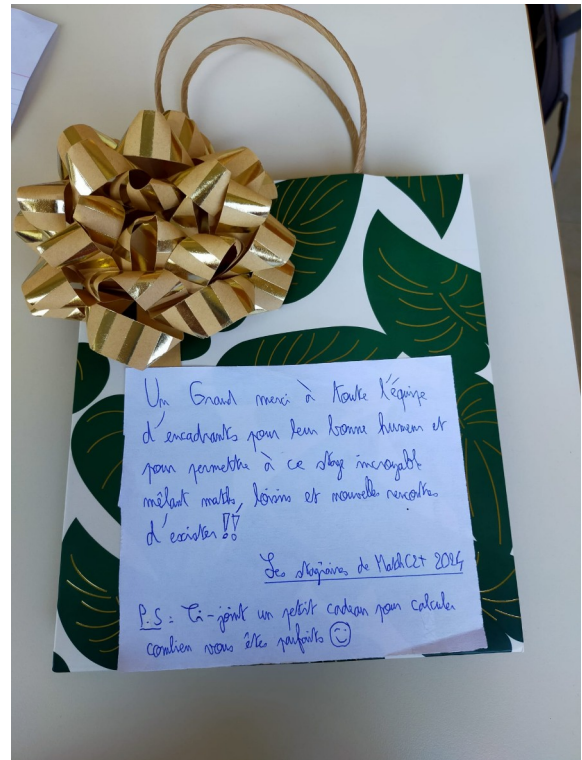 Un Grand merci à toute l'équipe
d'encadrants pour leur bonne humeur et
pour permettre à ce stage incroyable
mêlant maths, loisirs et nouvelles rencontres
d'exister !!
Les stagiaires de MathC2+ 2024
P.S : Ci-joint un petit cadeau pour calculer
combien vous êtes parfaits